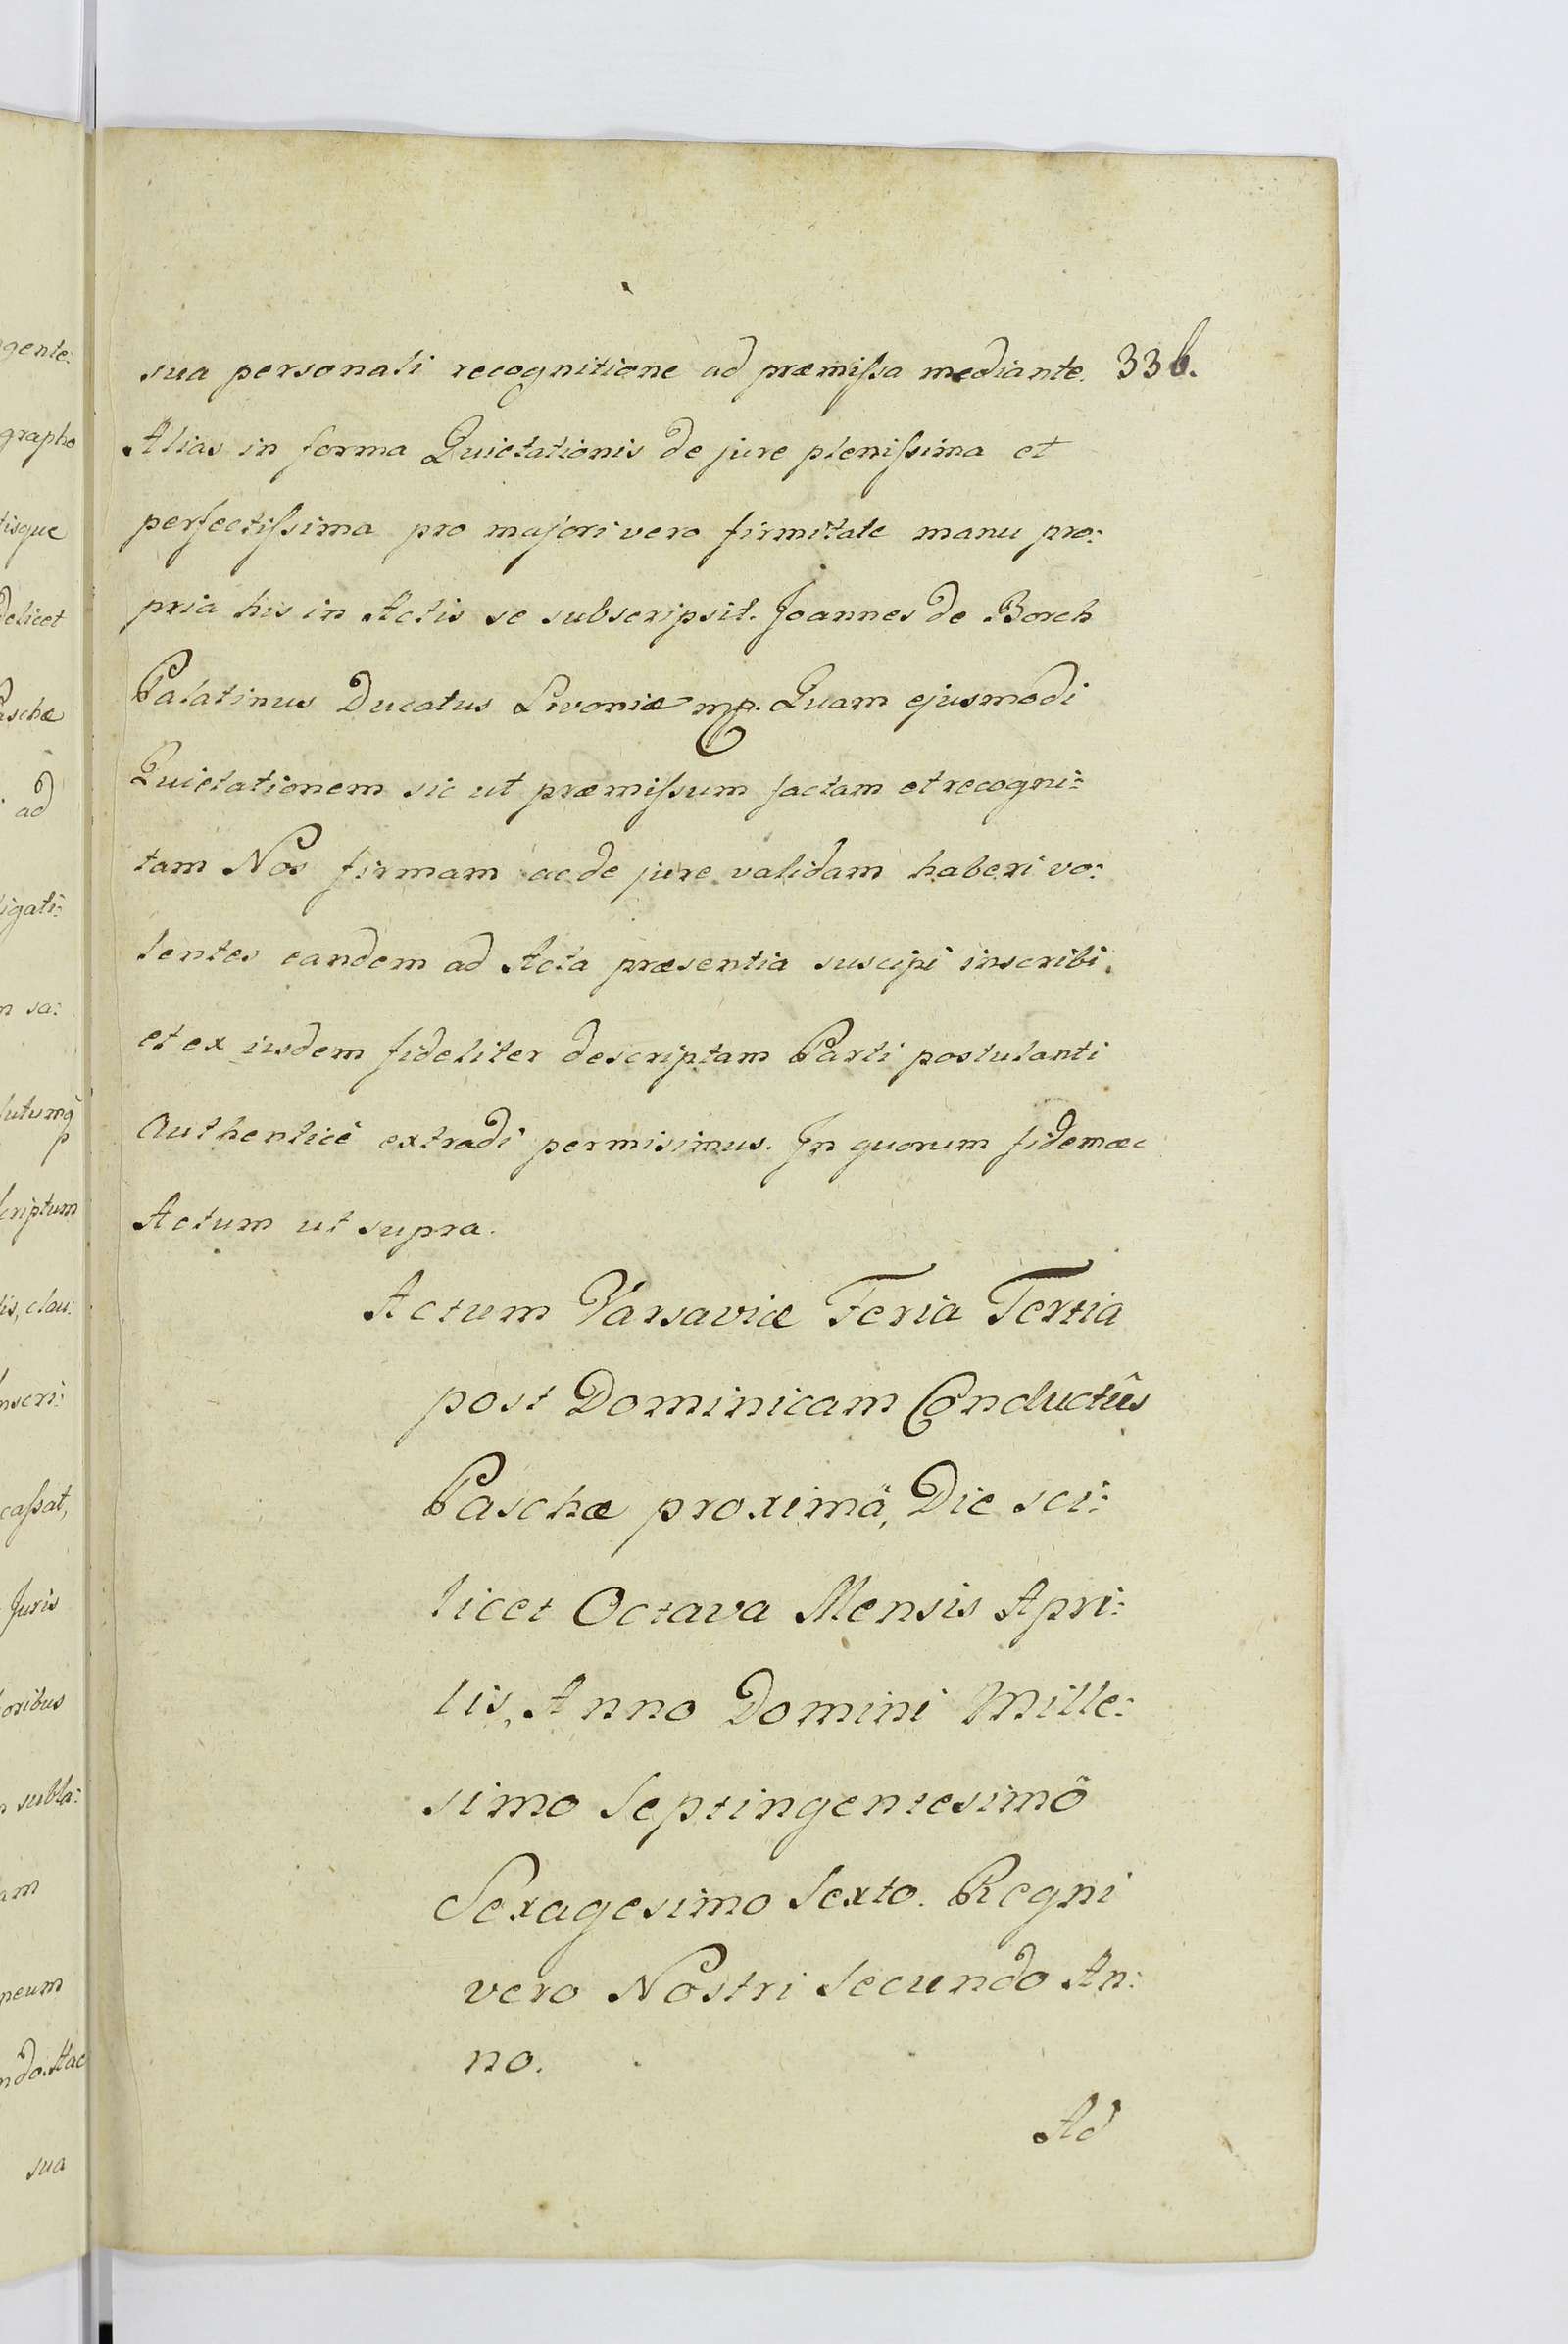 sua personali recognitione ad præmiſsa mediante. 336.
Alias in forma Quietationis de jure pleniſsima et
perfectiſsima pro majori vero firmitate manu pro:
pria his in Actis se subscripsit. Joannes de Borch
Palatinus Ducatus Livoniæ mp. Quam ejusmodi
Quietationem sic ut præmiſsum factam et recogni:
tam Nos firmam ac de jure validam haberi vo:
lentes eandem ad Acta præsentia suscipi inscribi,
et ex iisdem fideliter descriptam Parti postulanti
authenticè extradi permisimus. In quorum fidem ac
Actum ut supra.
Actum Varsaviæ Feria Tertia
post Dominicam Conductûs
Paschæ proximâ, Die sci:
licet Octava Mensis Apri:
lis, Anno Domini Mille:
simo Septingentesimô
Sexagesimo Sexto. Regni
vero Nostri Secundo An:
no.
Ad
gente:
grapho
tisque
delicet
aschæ
ad
ligati:
m sa:
criptum
lis, clau:
nscri:
caſsat,
Juris
oribus
subla:
am
neum
ndo. Hac
sua